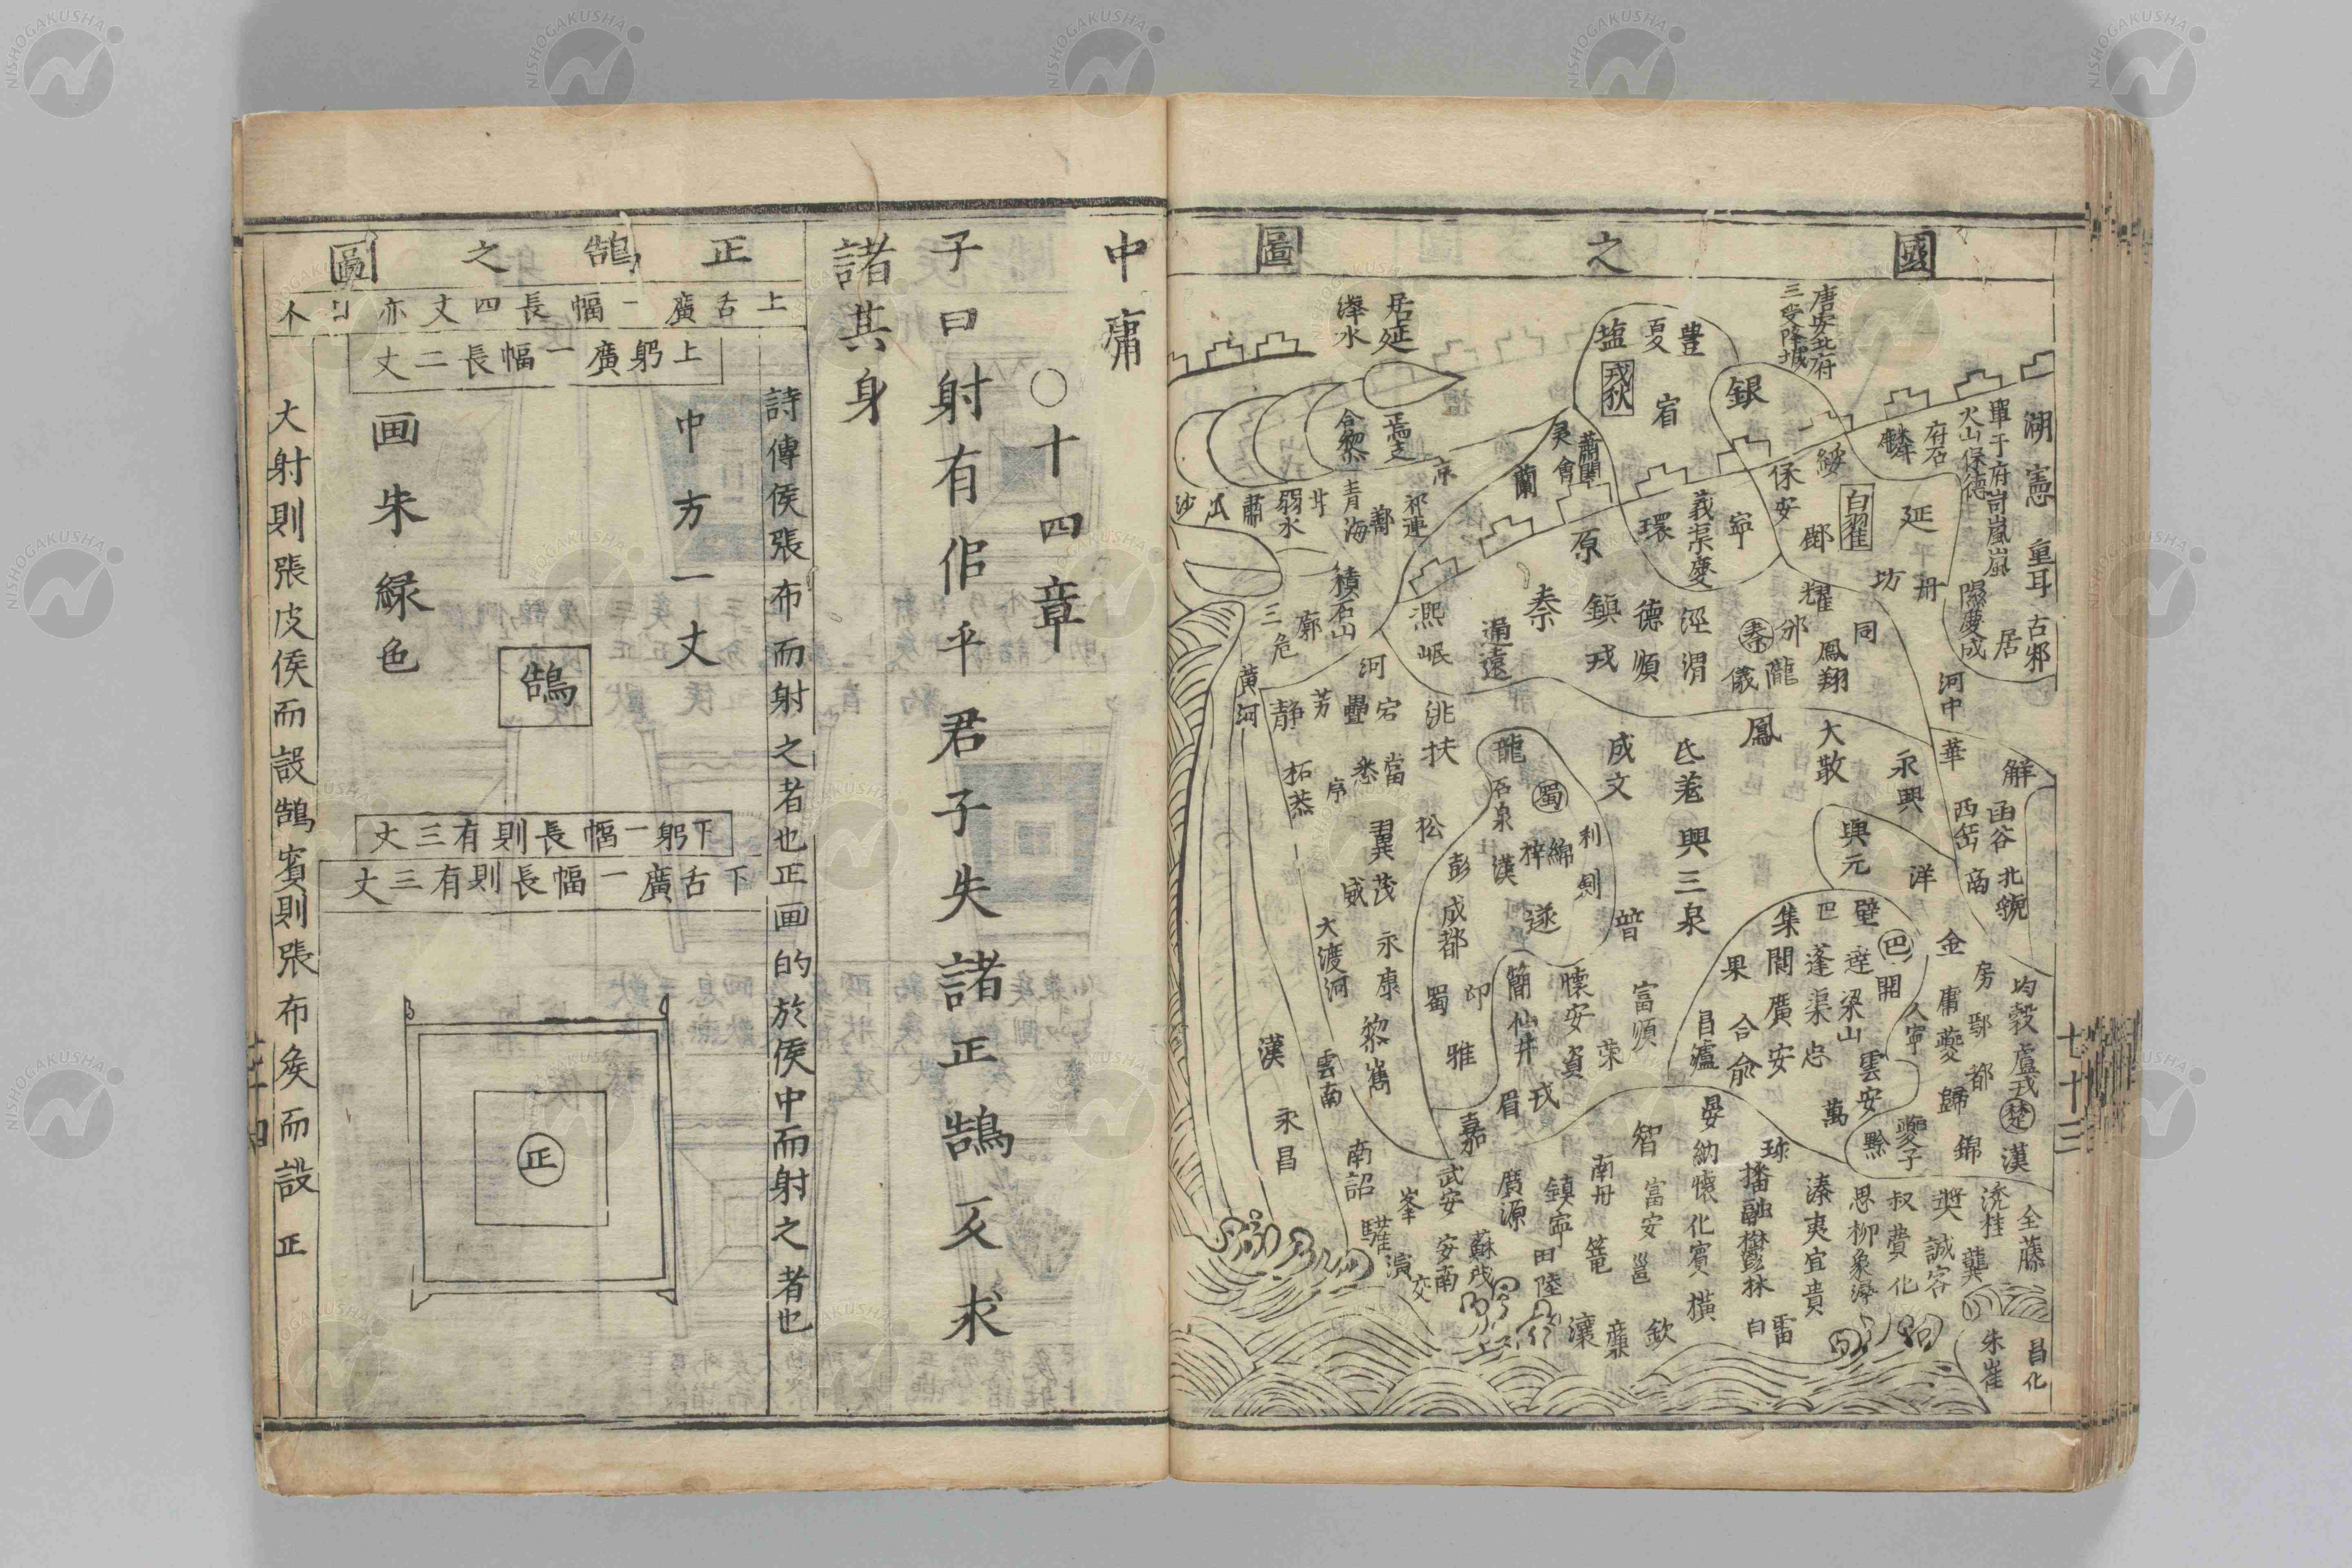 國之圖
唐安北府
三受降城
湖
憲
重耳
古邠
居
隰慶成
單于府岢嵐嵐
火山保德
府石
麟
綏
延
丹
坊
白翟
鄜
保安
銀
豊
夏
塩
宥
戎狄
蕭關
會
蘭
原
環
義渠慶
寧
居延
澤水
合黎
沙
瓜
肅
弱水
青海
鄯
祁連
積石山
三危
廓
黄河
熙
岷
河
通遠
秦
鎮戎
德順
涇渭
秦
邠
隴
儀
耀
同
鳳翔
河中
華
解
函谷
西岳
商
北虢
永興
大散
鳳
興元
洋
成文
興三泉
龍
石泉
蜀
綿
梓
漢
利
劍
遂
普
静
芳
疊
宕
洮
扶
拓恭
悉
當
翼
茂
威
松
彭
成都
永康
蜀
邛
雅
黎嶲
大渡河
雲南
漢
永昌
簡
仙井
懷安
資
榮
富順
戎
眉
嘉
昌瀘
合
渝
果
集
閬
廣安
巴
壁
蓬
渠
梁山
忠
巴
開
雲安
萬
夔子
黔
金
房
均
穀
盧戎
楚
漢
庸
夔
歸
大寧
都
錦
晏
納
懷
化
賓
橫
智
富安
邕
珍
播
融
林
白
雷
溱
夷
宜
貴
思
柳
象
潯
叔
費
化
獎
誠
容
桂
龔
全
藤
南詔
武安
峯
驩
演
交
安南
蘇茂
廣源
鎮寧
田
陸
南丹
欽
朱崖
昌化
七十三
中庸
○十四章
子曰射有佀乎君子失諸正鵠反求
諸其身
正鵠之圖
上舌廣一幅長四丈亦曰个
上躬廣一幅長二丈
詩傳侯張布而射之者也正画的於侯中而射之者也
中方一丈
鵠
画朱緑色
下躬一幅長則有三丈
下舌廣一幅長則有三丈
正
大射則張皮侯而設鵠賓則張布矦而設正